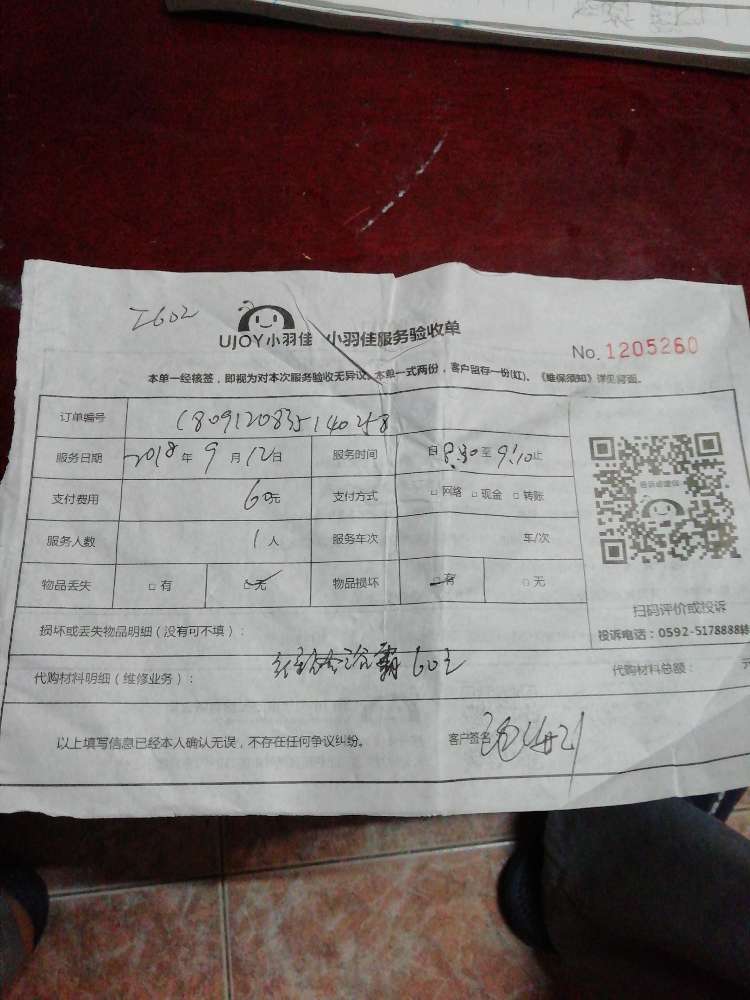 I602
UJOY小羽佳 小羽佳服务验收单
No. 1205260
本单一经核签，即视为对本次服务验收无异议。本单一式两份，客户留存一份(红)。《维保须知》详见背面。
订单编号 1809120835140258
服务日期 2018年9月12日 服务时间 自8:30至9:10止
支付费用 60元 支付方式 □网络 □现金 □转账
服务人数 1人 服务车次 车/次
物品丢失 □有 □无 物品损坏 □有 □无
扫码评价或投诉
损坏或丢失物品明细（没有可不填）：
投诉电话：0592-5178888转
代购材料明细（维修业务）： 浴霸60元 代购材料总额： 元
以上填写信息已经本人确认无误，不存在任何争议纠纷。 客户签名